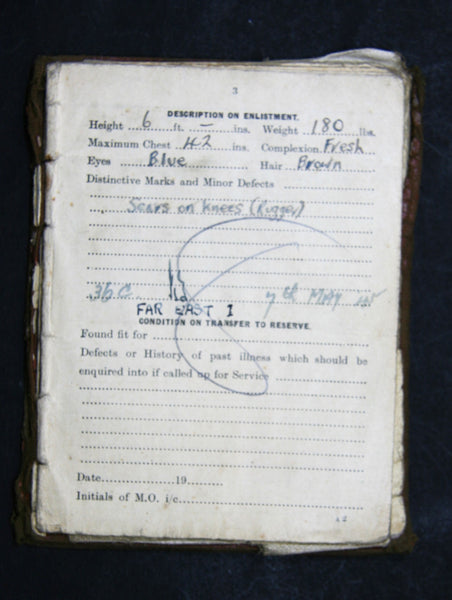 3
DESCRIPTION ON ENLISTMENT.
Height 6 ft. — ins. Weight 180 lbs.
Maximum Chest 42 ins. Complexion Fresh
Eyes Blue Hair Brown
Distinctive Marks and Minor Defects
Scars on knees (Rugger)
7th MAY 45
FAR EAST I
CONDITION ON TRANSFER TO RESERVE.
Found fit for
Defects or History of past illness which should be
enquired into if called up for Service
Date 19
Initials of M.O. i/c
A 2